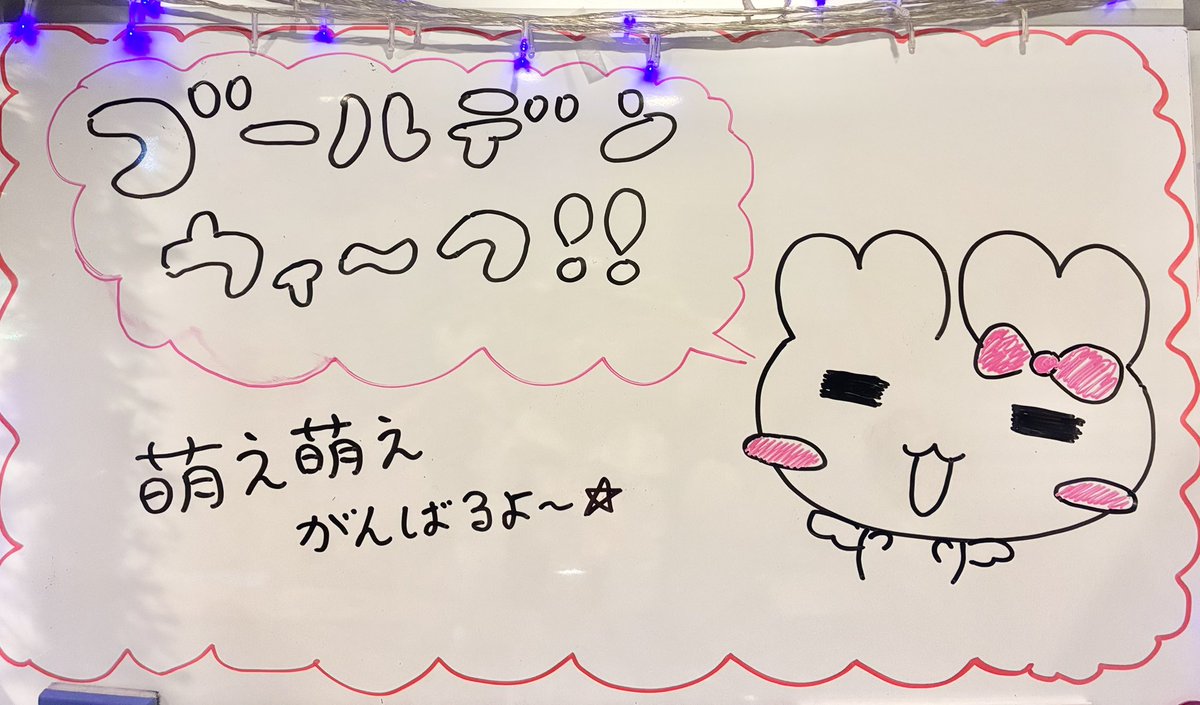 ゴールデン
ウィ〜ク!!
萌え萌え
がんばるよ〜☆